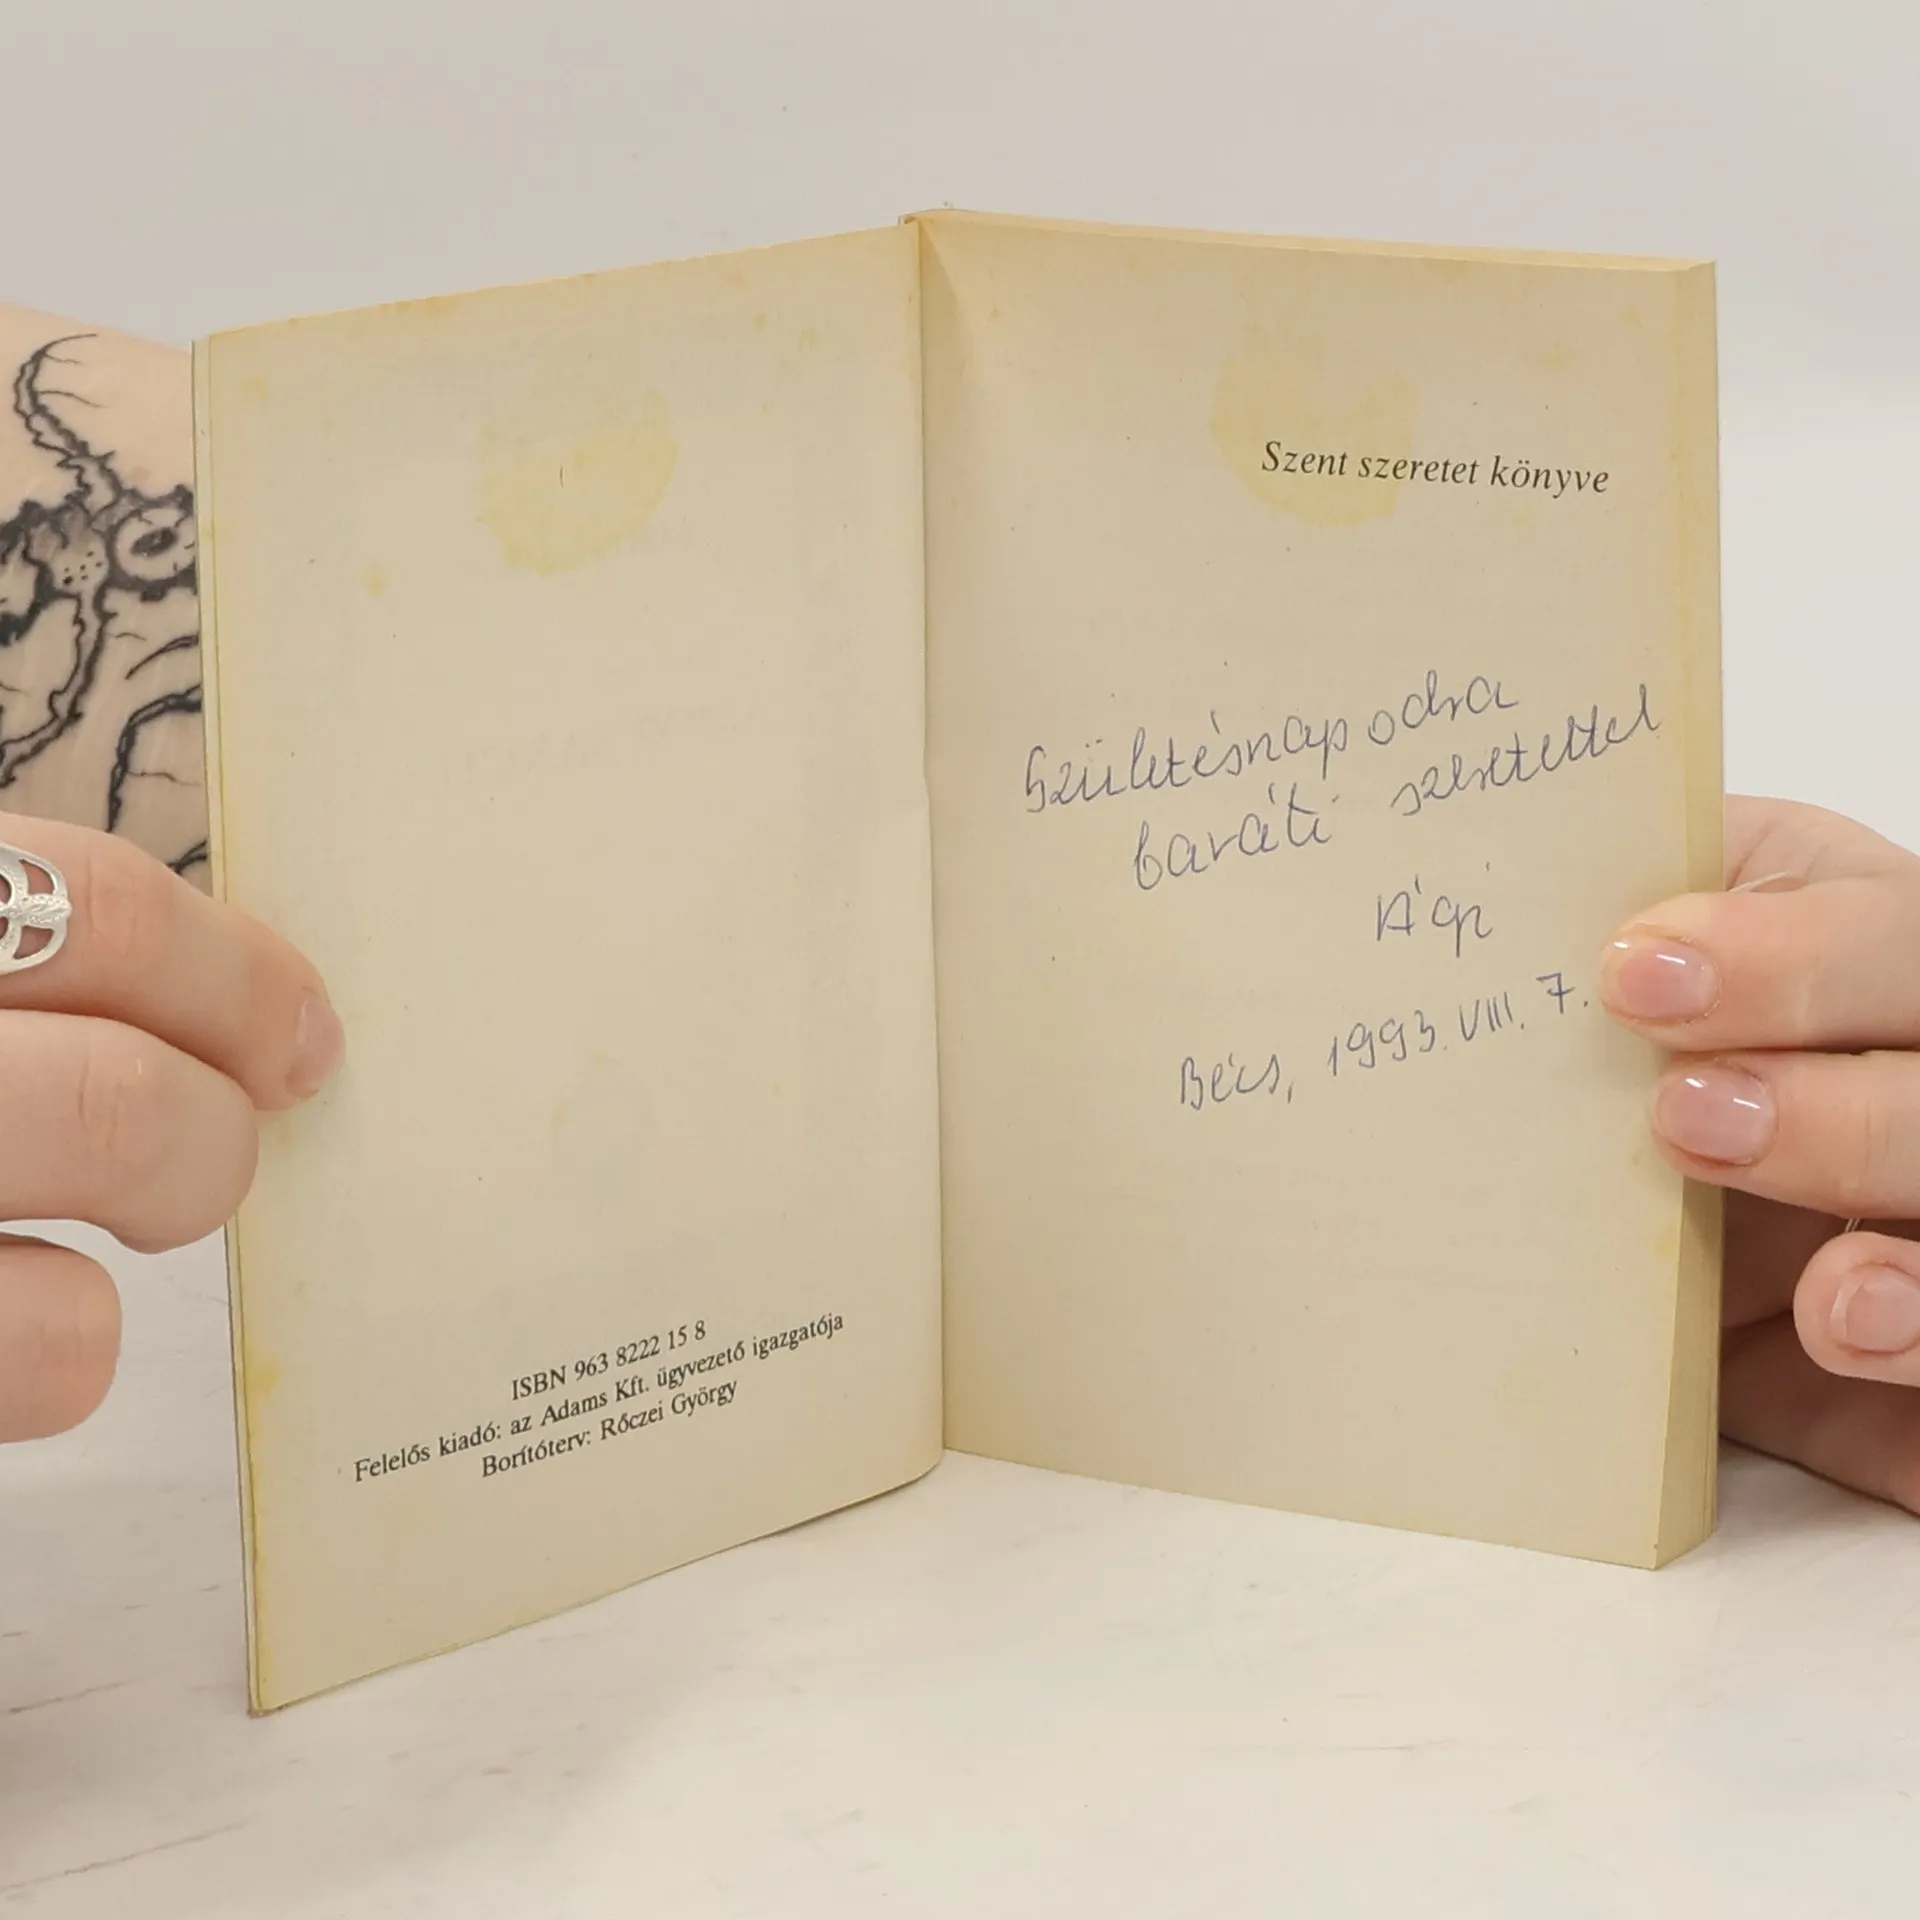 ISBN 963 8222 15 8
Felelős kiadó: az Adams Kft. ügyvezető igazgatója
Borítóterv: Rőczei György
Szent szeretet könyve
Születésnapodra
baráti szeretettel
Ági
Bécs, 1993. VIII. 7.